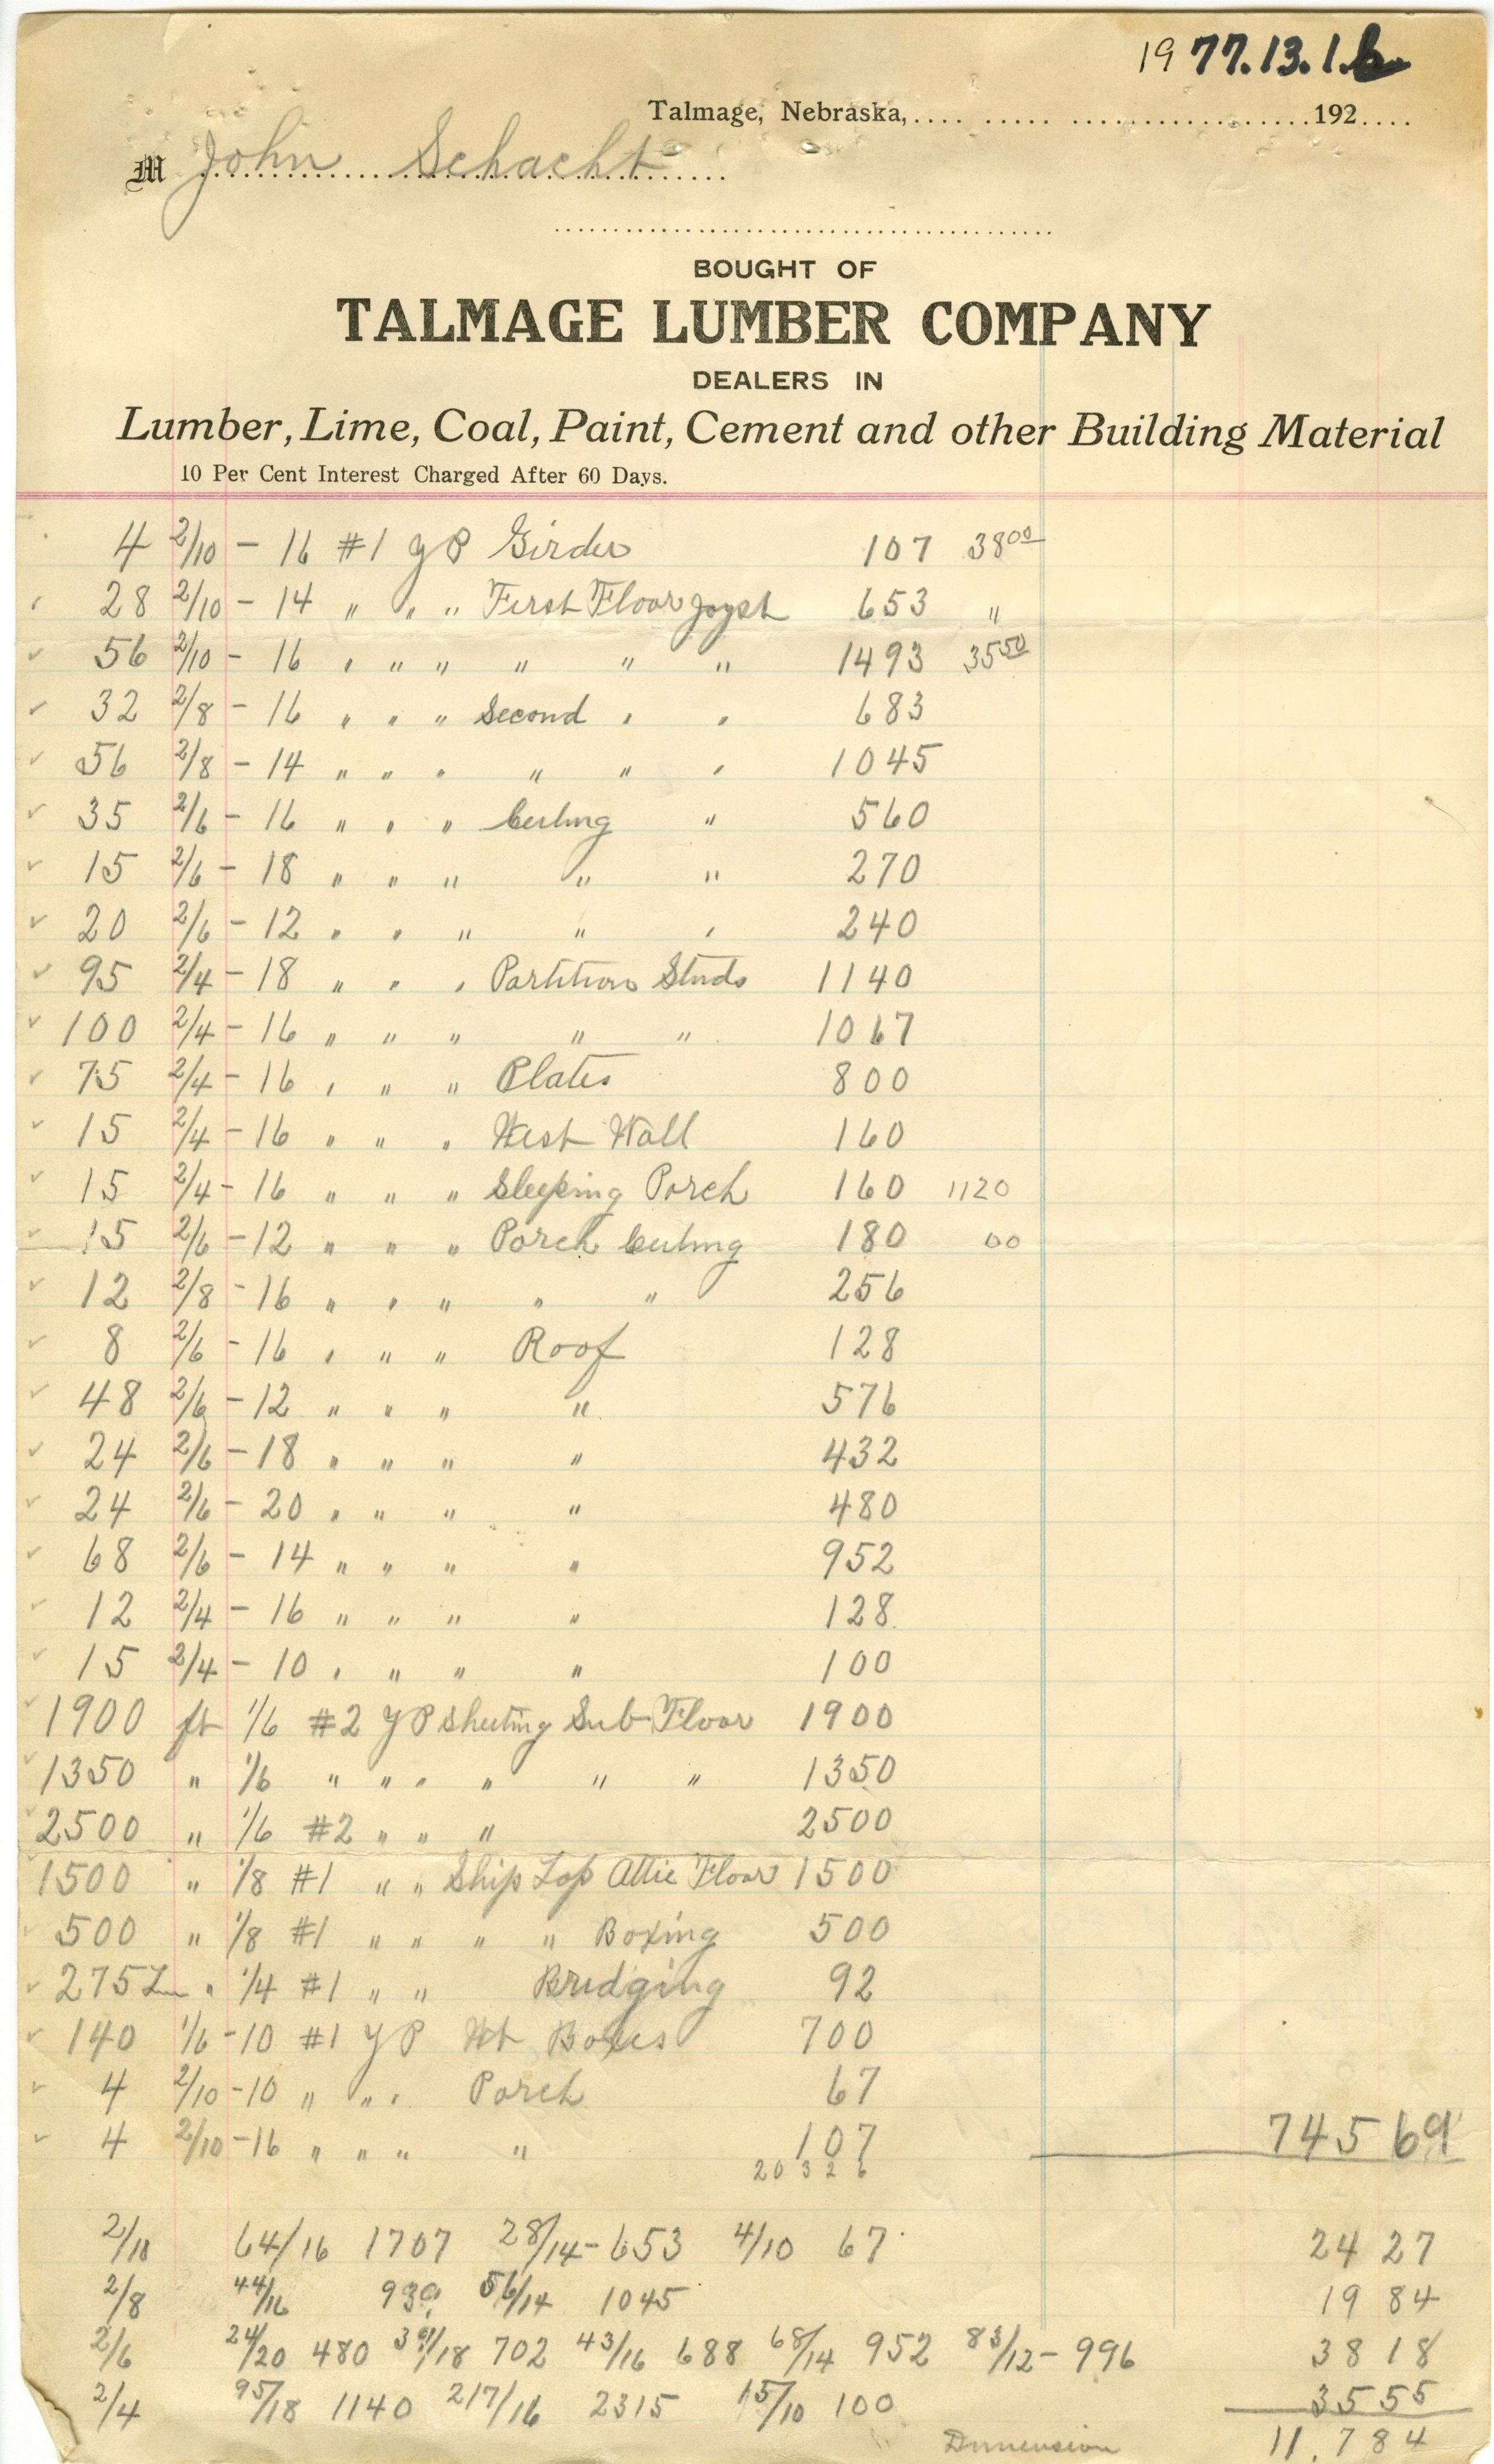 1977.13.1.b.
Talmage, Nebraska,.... ..... ..................192....
M John Schacht
BOUGHT OF
TALMAGE LUMBER COMPANY
DEALERS IN
Lumber, Lime, Coal, Paint, Cement and other Building Material
10 Per Cent Interest Charged After 60 Days.
4 2/10 - 16 #1 YP Girder 107 38 00
28 2/10 - 14 " " " First Floor Joyst 653 "
56 2/10 - 16 " " " " " " 1493 35 50
32 2/8 - 16 " " " Second " " 683
56 2/8 - 14 " " " " " " 1045
35 2/6 - 16 " " " Ceiling " 560
15 2/6 - 18 " " " " " 270
20 2/6 - 12 " " " " " 240
95 2/4 - 18 " " " Partition Studs 1140
100 2/4 - 16 " " " " " 1067
75 2/4 - 16 " " " Plates 800
15 2/4 - 16 " " " West Wall 160
15 2/4 - 16 " " " Sleeping Porch 160 1120
15 2/6 - 12 " " " Porch Ceiling 180 00
12 2/8 - 16 " " " " " 256
8 2/6 - 16 " " " Roof 128
48 2/6 - 12 " " " " 576
24 2/6 - 18 " " " " 432
24 2/6 - 20 " " " " 480
68 2/6 - 14 " " " " 952
12 2/4 - 16 " " " " 128
15 2/4 - 10 " " " " 100
1900 ft 1/6 #2 YP Sheeting Sub Floor 1900
1350 " 1/6 " " " " " " 1350
2500 " 1/6 #2 " " " 2500
1500 " 1/8 #1 " " Ship Lap Attic Floor 1500
500 " 1/8 #1 " " " " Boxing 500
275 Lin " 1/4 #1 " " Bridging 92
140 1/6 - 10 #1 YP Wt Boxes 700
4 2/10 - 10 " " " Porch 67
4 2/10 - 16 " " " " 107 745 69
20326
2/10 64/16 1707 28/14 - 653 4/10 67 2427
2/8 44/16 939 56/14 1045 1984
2/6 24/20 480 39/18 702 43/16 688 68/14 952 83/12 - 996 3818
2/4 95/18 1140 217/16 2315 15/10 100 3555
Dimension 11.784